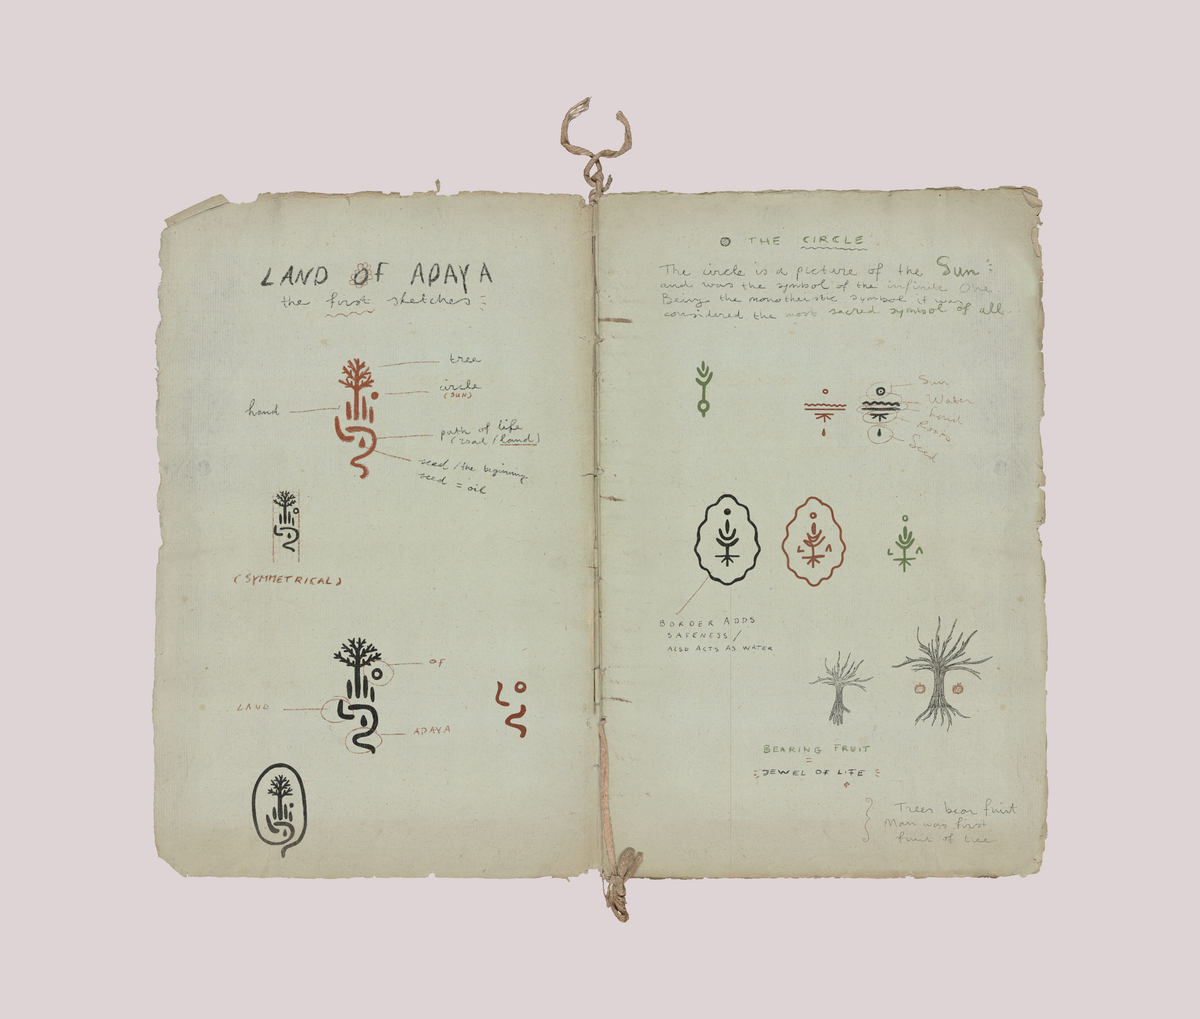 LAND OF ADAYA
the first sketches
tree
circle
(SUN)
hand
path of life
(road/land)
seed/the beginning
seed = oil
(SYMMETRICAL)
OF
LAND
ADAYA
THE CIRCLE
The circle is a picture of the Sun
and was the symbol of the infinite One.
Being the monotheistic symbol it was
considered the most sacred symbol of all.
Sun
Water
Land
Roots
Seed
L A
L A
BORDER ADDS
SAFENESS/
ALSO ACTS AS WATER
BEARING FRUIT
=
JEWEL OF LIFE
Trees bear fruit
Man was first
fruit of tree